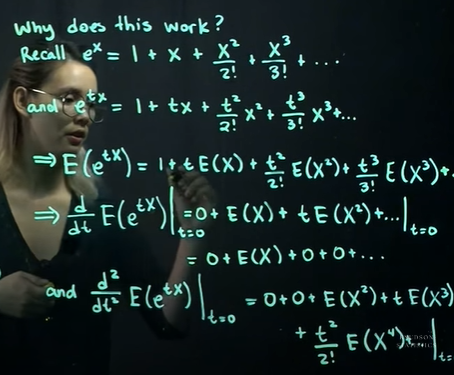 Why does this work?
Recall e^x = 1 + x + x²/2! + x³/3! + ...
and e^tx = 1 + tx + t²/2! x² + t³/3! x³ + ...
⇒ E(e^tX) = 1 + t E(X) + t²/2! E(X²) + t³/3! E(X³) + .
⇒ d/dt E(e^tX)|t=0 = 0 + E(X) + t E(X²) + ...|t=0
= 0 + E(X) + 0 + 0 + ...
and d²/dt² E(e^tX)|t=0 = 0 + 0 + E(X²) + t E(X³)
+ t²/2! E(X⁴) |t=